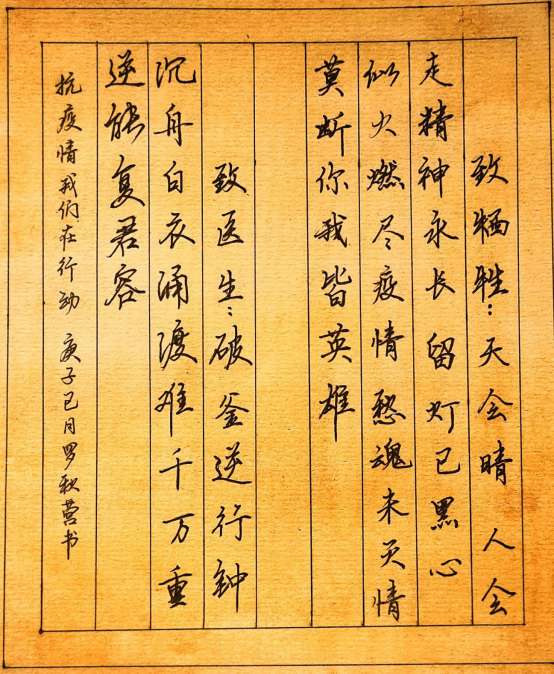 致牺牲:天会晴人会
走精神永长留灯已黑心
似火燃尽疫情愁魂未灭情
莫断你我皆英雄
致医生:破釜逆行钟
沉舟白衣涌渡难千万重
逆能复君容
抗疫情我们在行动 庚子巳月罗秋营书